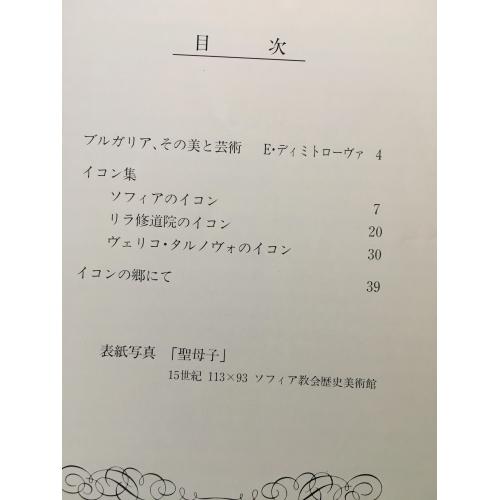 目 次
ブルガリア、その美と芸術 E・ディミトローヴァ 4
イコン集
ソフィアのイコン 7
リラ修道院のイコン 20
ヴェリコ・タルノヴォのイコン 30
イコンの郷にて 39
表紙写真 「聖母子」
15世紀 113×93 ソフィア教会歴史美術館